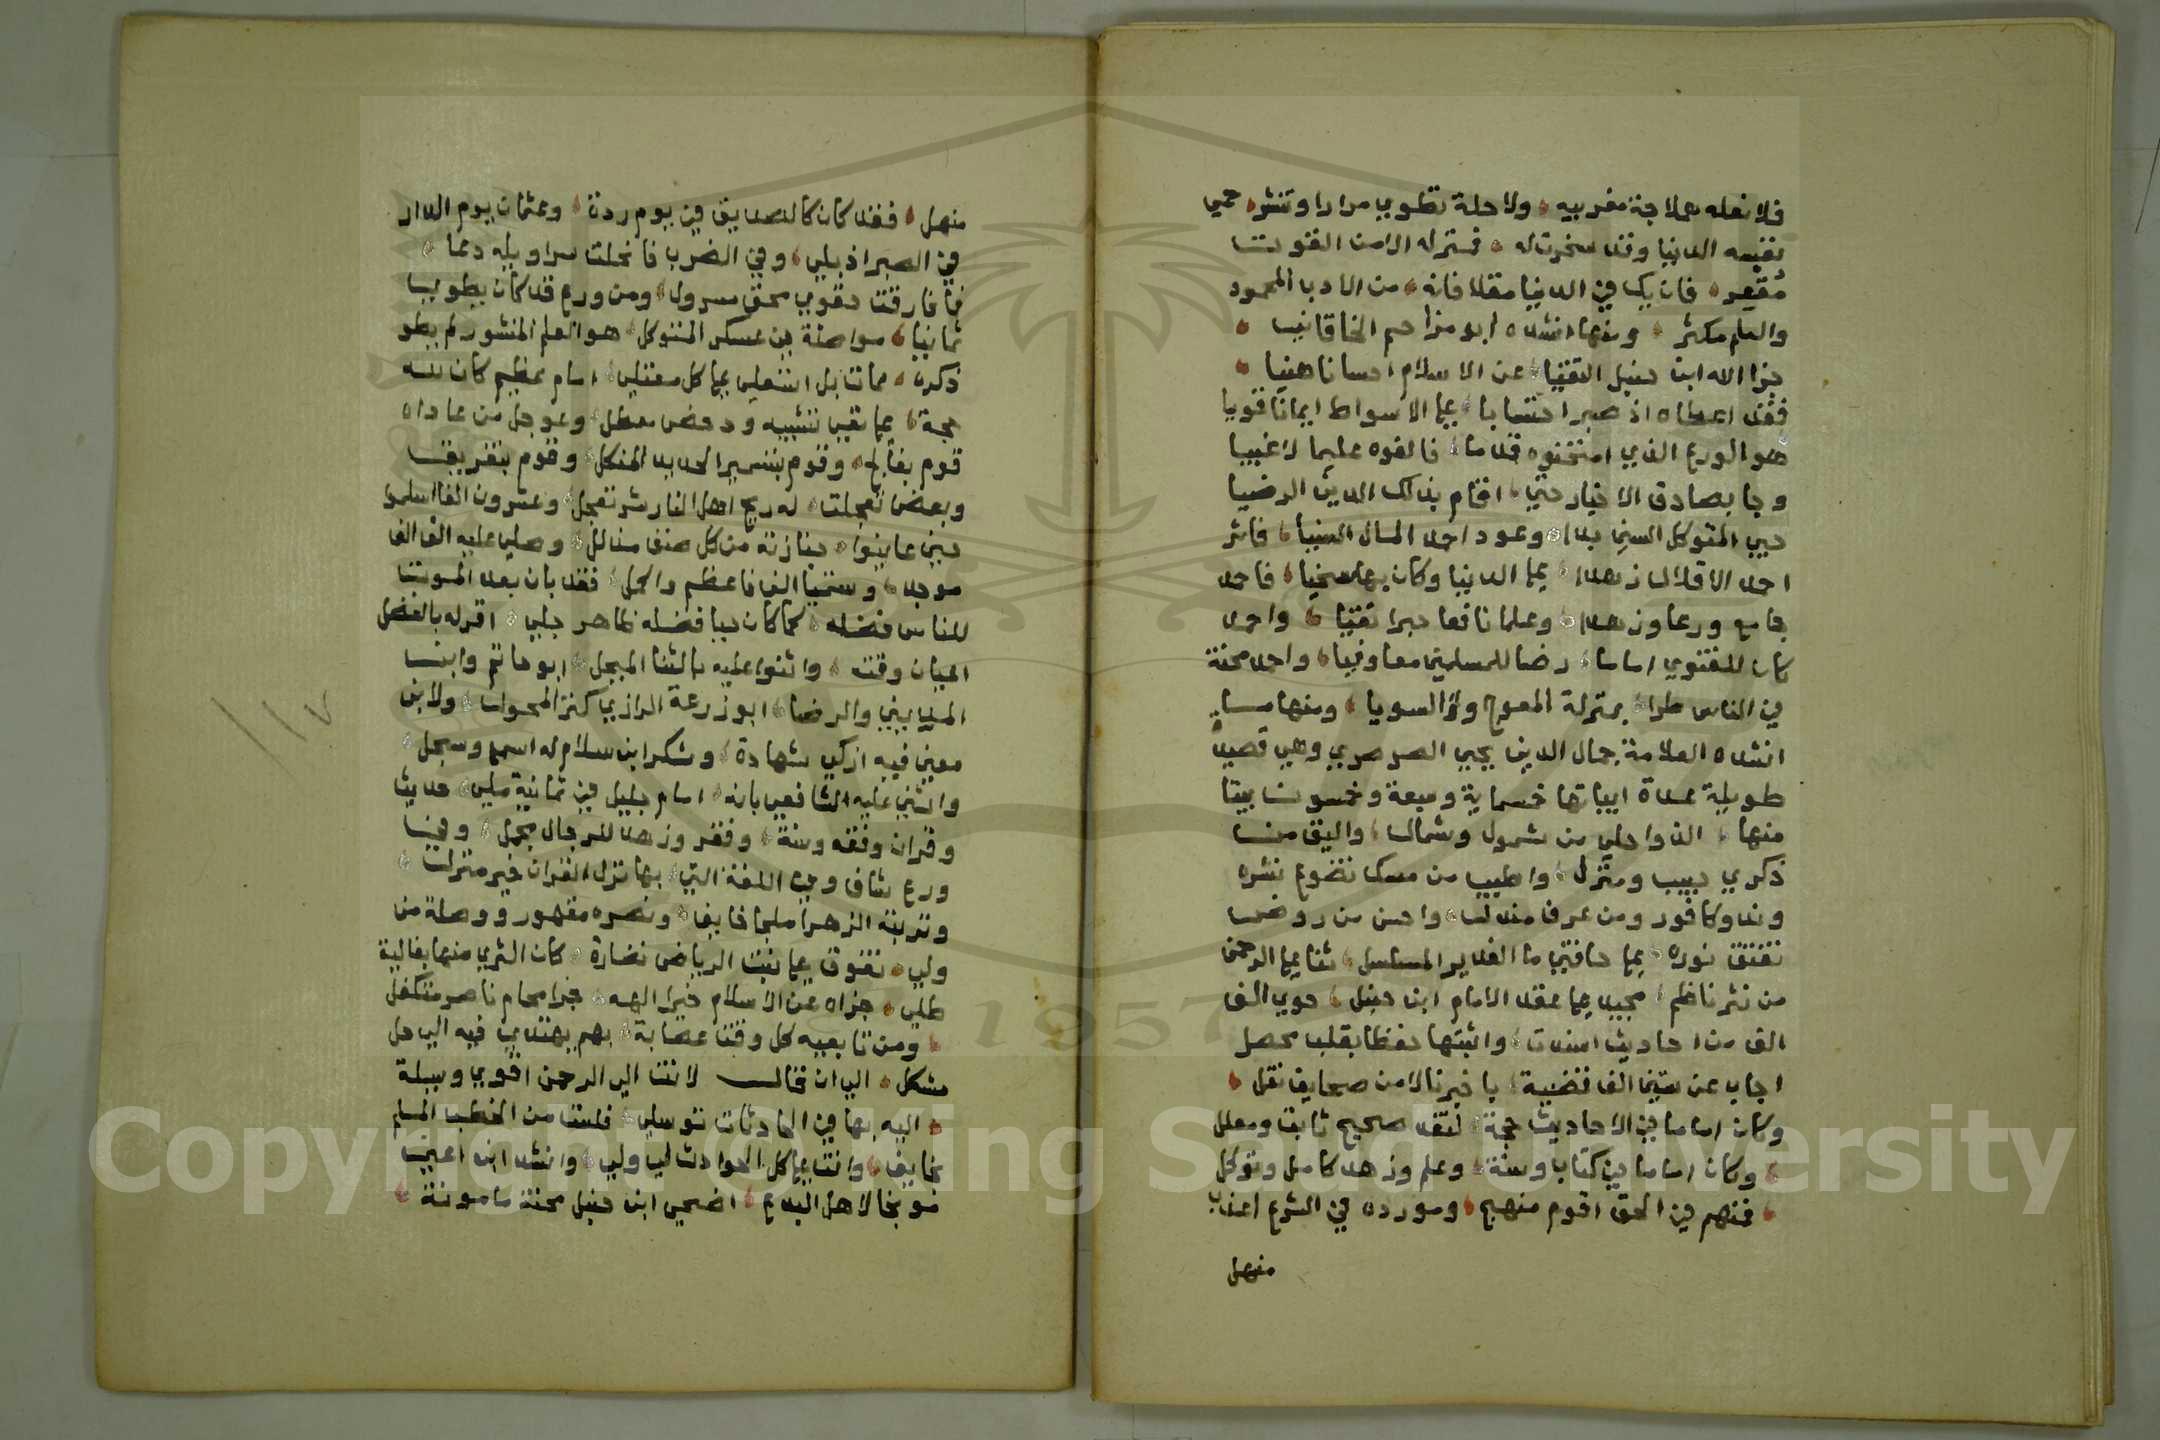 فلا نعله هملاجة مغربيه ولا حلة تطوي مرارا وتنشر حمي
نفسه الدنيا وقد سخرت له فمنزله الا من القوت
مقفر فان يك في الدنيا مقلا فانه من الادب المحمود
والعلم مكثر ومنها انشده ابو مزاحم الخاقاني
جزا الله ابن حنبل التقيا عن الاسلام احسانا هنيا
فقد اعطاه اذ صبر احتسابا علي الاسواط ايمانا قويا
هو الورع الذي امتحنوه قدما فالفوه عليما لا غبيا
وجا بصادق الاخبار حتي اقام بذلك الدين الرضيا
حبي المتوكل السني بدا وعود احمد المال السنيا فاثر
احمد الاقلال زهدا علي الدنيا وكان بها سخيا فاحمد
جامع ورعا وزهدا وعلما نافعا حبرا تقيا واحمد
كان للفتوي اماما رضا للمسلمين معا وفيا واحمد محنة
في الناس طرا بمنزلة المعوج والسويا ومنها ما
انشده العلامة جمال الدين يحيي الصرصري وهي قصيدة
طويلة عدة ابياتها خمسماية وسبعة وخمسون بيتا
منها الذ واحلي من شمول وشمال واليق من
ذكري حبيب ومنزل واطيب من مسك تضوع نشره
وند وكافور ومن عرف مندل واحسن من روض
تفتق نوره علي حافتي ما الغدير المسلسل ثنا علي الرحمن
من نثر ناظم مجيد علي عقد الامام ابن حنبل حوي الف
الف من احاديث اسندت واثبتها حفظا بقلب محصل
اجاب عن ستين الف قضية باخبرنا لا من صحايف نقل
وكان اماما في الاحاديث حجة لنقد صحيح ثابت ومعلل
وكان اماما في كتاب وسنة وعلم وزهد كامل وتوكل
فمنهم في الحق اقوم منهج ومورده في الشرع اعذب
منهل
منهل فقد كان كالصديق في يوم ردة وعثمان يوم الدار
في الصبر اذ بلي وفي الضرب فانحلت سراويله دعا
فما فارقت حقوي محق مسرول ومن ورع قد كان يطوي
ثمانيا مواصلة في عسكر المتوكل هو العلم المنشور لم يطو
ذكره ممات بل استعلي علي كل معتلي امام عظيم كان لله
حجة علي نفي تشبيه ودحض معطل وعوجل من عاداه
قوم بفالج وقوم بتسمير الحديد المنكل وقوم بتفريق
وبعض تعجلت له ريح اهل النار شر تعجل وعشرون الفا اسلموا
حين عاينوا جنازته من كل صنف مضلل وصلي عليه الف الف
موحد وستميا الف فاعظم واكمل فقد بان بعد الموت
للناس فضله كما كان حيا فضله ظاهر جلي اقر له بالفضل
اعيان وقته واثنوا عليه بالثنا المبجل ابو حاتم وابن
المديني والرضا ابو زرعة الرازي كنز المحول ولابن
معين فيه ازكي شهادة وشكر ابن سلام له اسمع وسجل
واثني عليه الشافعي بانه امام جليل في ثمانية ملي حديث
وقران وفقه وسنة وفقر وزهد للرجال مجمل وفي
ورع شاف وفي اللغة التي بها نزل القران خير منزل
وتربته الزهرا ملجا خايف ونصره مقهور ووصلة من
ولي تفوق علي نبت الرياض نضارة كان الثري منها بغالية
طلي جزاه عن الاسلام خيرا الهه جزا محام ناصر متكفل
ومن تابعيه كل وقت عصابة بهم يهتدي فيه الي حل
مشكل الي ان قال لانت الي الرحمن اقوي وسيلة
اليه بها في الحادثات توسلي فلست من الخطب الملم
بخايف وانت علي كل الحوادث لي ولي وانشد ابن اعين
توبيخا لاهل البدع اضحي ابن حنبل محنة مامونة
١١٧
1957
Copyright © King Saud University